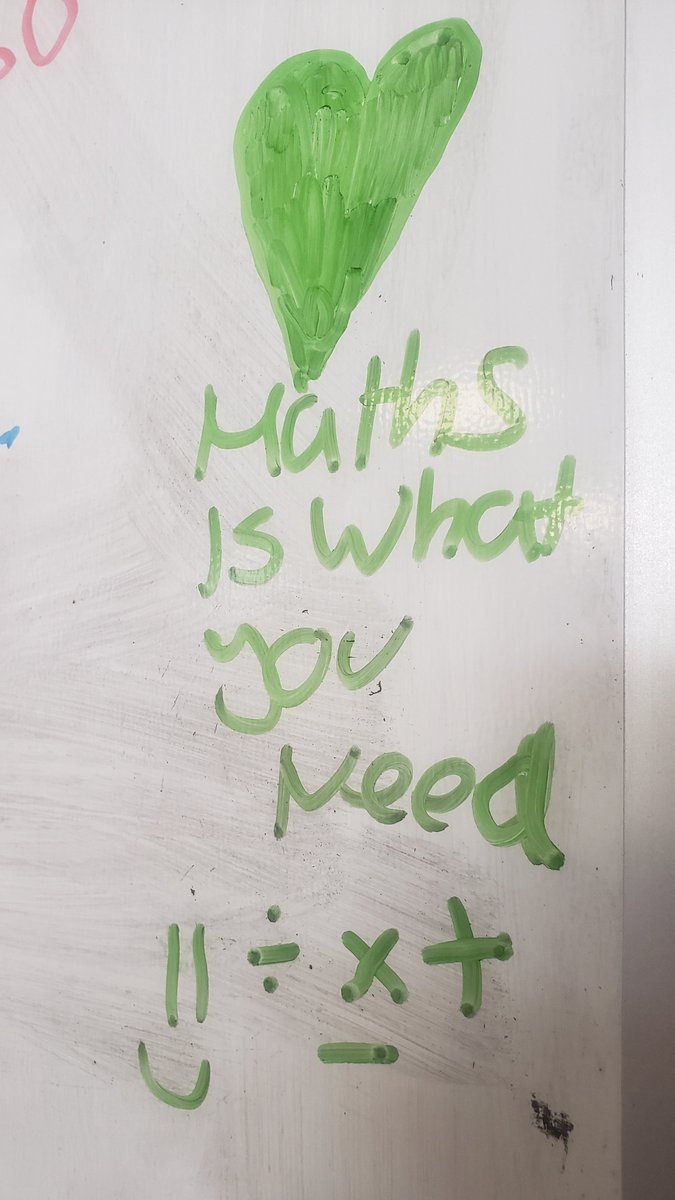 Maths
is what
you
need
÷ × +
−